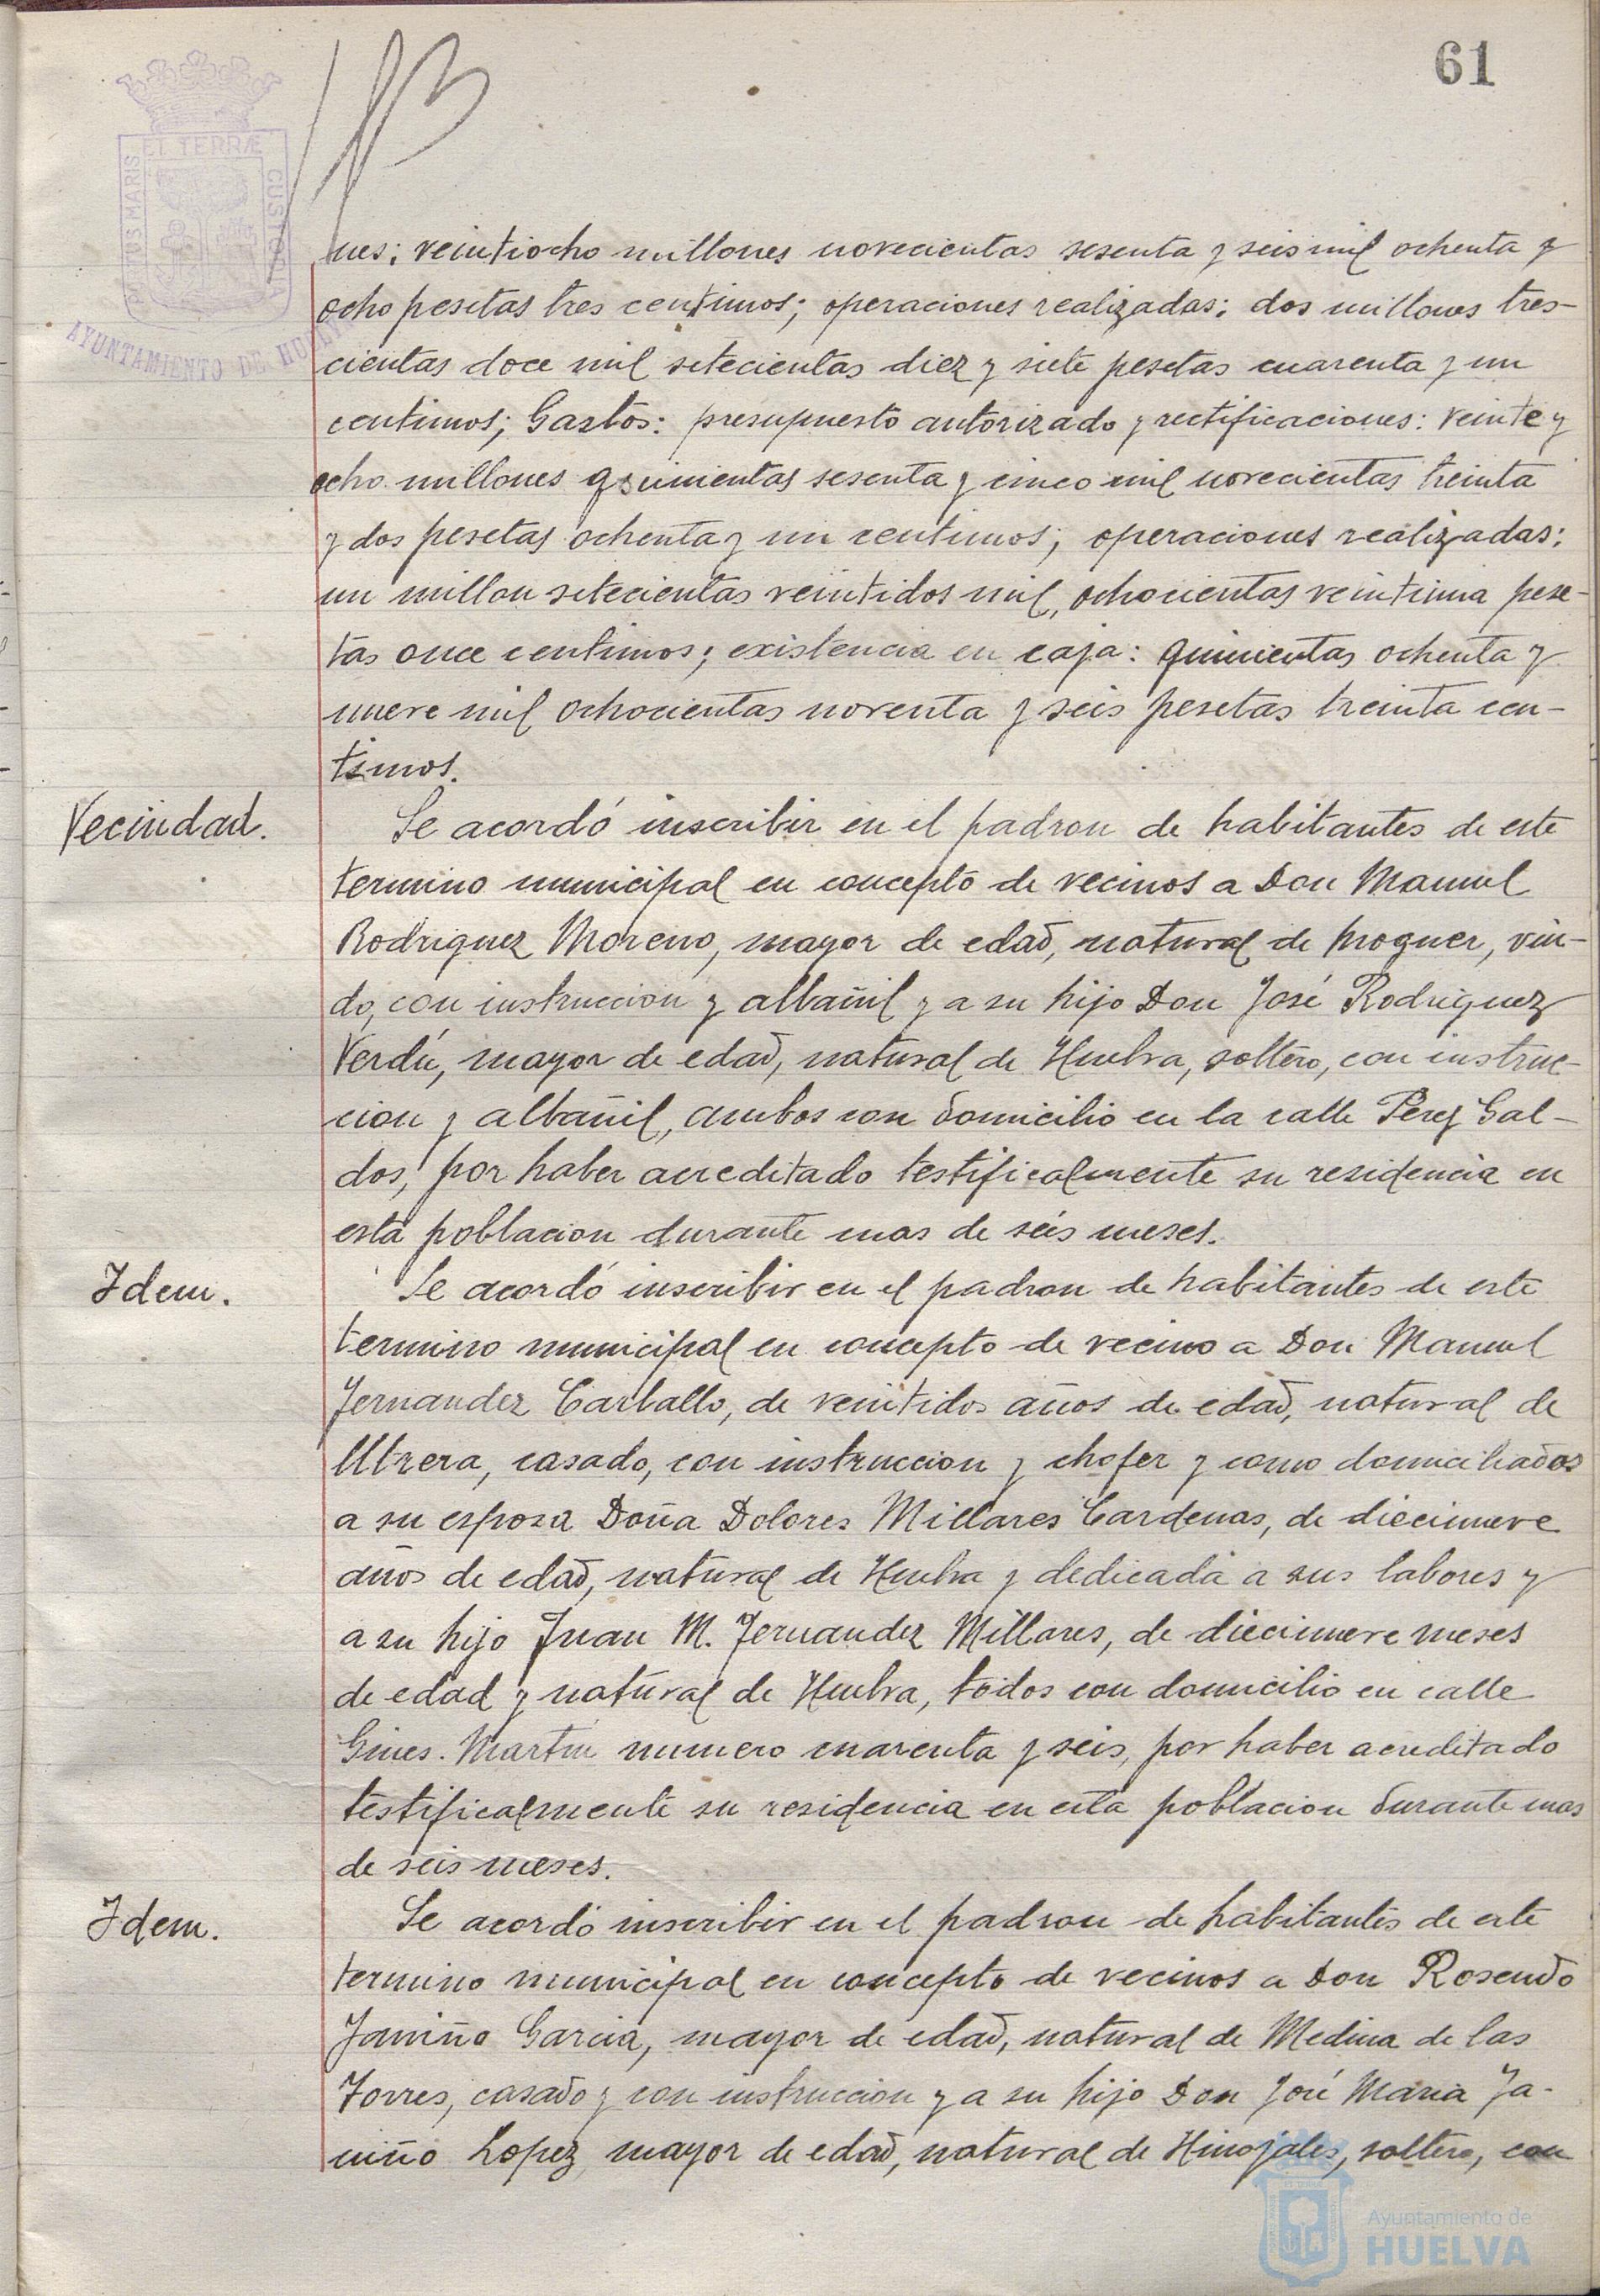 61
ET TERRÆ
PORTUS MARIS
CUSTODIA
AYUNTAMIENTO DE HUELVA
nes: veintiocho millones novecientas sesenta y seis mil ochenta y
ocho pesetas tres centimos; operaciones realizadas: dos millones tres-
cientas doce mil setecientas diez y siete pesetas cuarenta y un
centimos; Gastos: presupuesto autorizado y rectificaciones: veinte y
ocho millones quinientas sesenta y cinco mil novecientas treinta
y dos pesetas ochenta y un centimos; operaciones realizadas:
un millon setecientas veintidos mil, ochocientas veintiuna pese-
tas once centimos; existencia en caja: quinientas ochenta y
nueve mil ochocientas noventa y seis pesetas treinta cen-
timos.
Vecindad.
Se acordó inscribir en el padron de habitantes de este
termino municipal en concepto de vecinos a Don Manuel
Rodriguez Moreno, mayor de edad, natural de Moguer, viu-
do, con instruccion y albañil y a su hijo Don José Rodriguez
Verdú, mayor de edad, natural de Huelva, soltero, con instruc-
cion y albañil, ambos con domicilio en la calle Perez Gal-
dos, por haber acreditado testificalmente su residencia en
esta poblacion durante mas de seis meses.
Idem.
Se acordó inscribir en el padron de habitantes de este
termino municipal en concepto de vecino a Don Manuel
Fernandez Carballo, de veintidos años de edad, natural de
Utrera, casado, con instruccion y chofer y como domiciliados
a su esposa Doña Dolores Millares Cardenas, de diecinueve
años de edad, natural de Huelva y dedicada a sus labores y
a su hijo Juan M. Fernandez Millares, de diecinueve meses
de edad y natural de Huelva, todos con domicilio en calle
Gines Martin numero cuarenta y seis, por haber acreditado
testificalmente su residencia en esta poblacion durante mas
de seis meses.
Idem.
Se acordó inscribir en el padron de habitantes de este
termino municipal en concepto de vecinos a Don Rosendo
Janiño Garcia, mayor de edad, natural de Medina de las
Torres, casado y con instruccion y a su hijo Don José Maria Ja-
niño Lopez, mayor de edad, natural de Hinojales, soltero, con
Ayuntamiento de
HUELVA